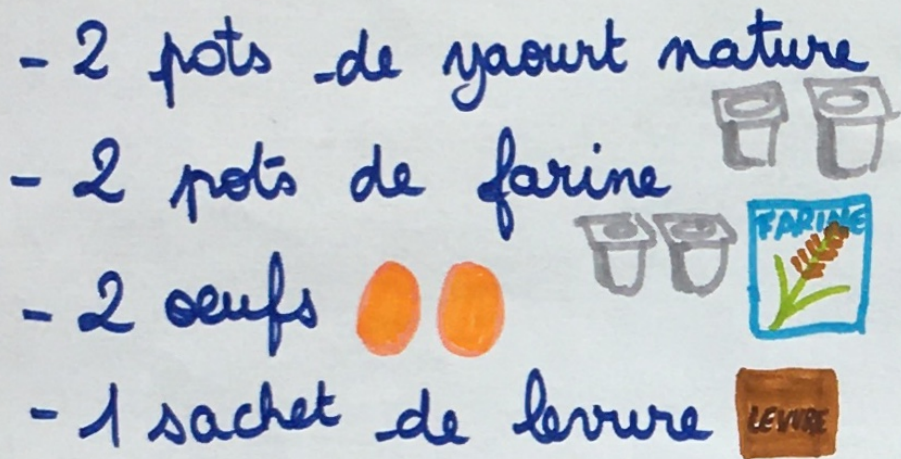 - 2 pots de yaourt nature
- 2 pots de farine
FARINE
- 2 oeufs
- 1 sachet de levure
LEVURE